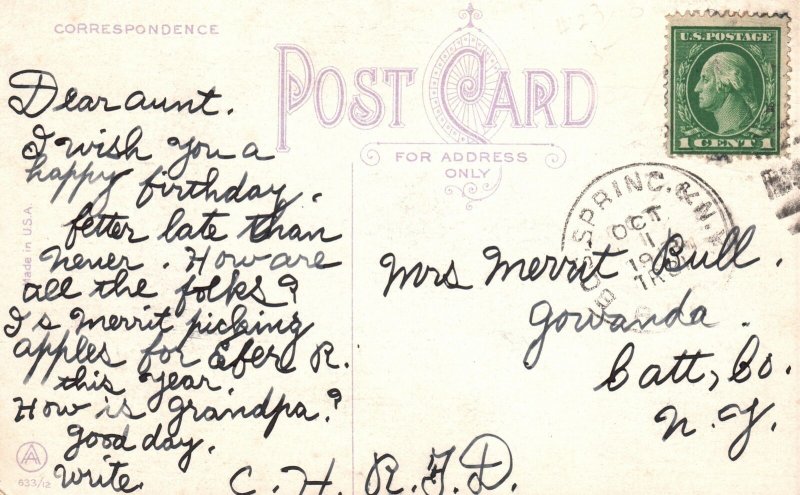 CORRESPONDENCE
POST CARD
FOR ADDRESS
ONLY
U.S. POSTAGE
1 CENT 1
Dear aunt.
I wish you a
happy birthday.
better late than
never. How are
all the folks?
Is Merrit picking
apples for Eber R.
this year.
How is grandpa?
good day.
write.
C. H. R. F. D.
BOS. SPRING. & N.Y.
OCT
11
19
Mrs Merrit Bull.
Gowanda.
Catt, Co.
N. Y.
Made in U.S.A.
633/12